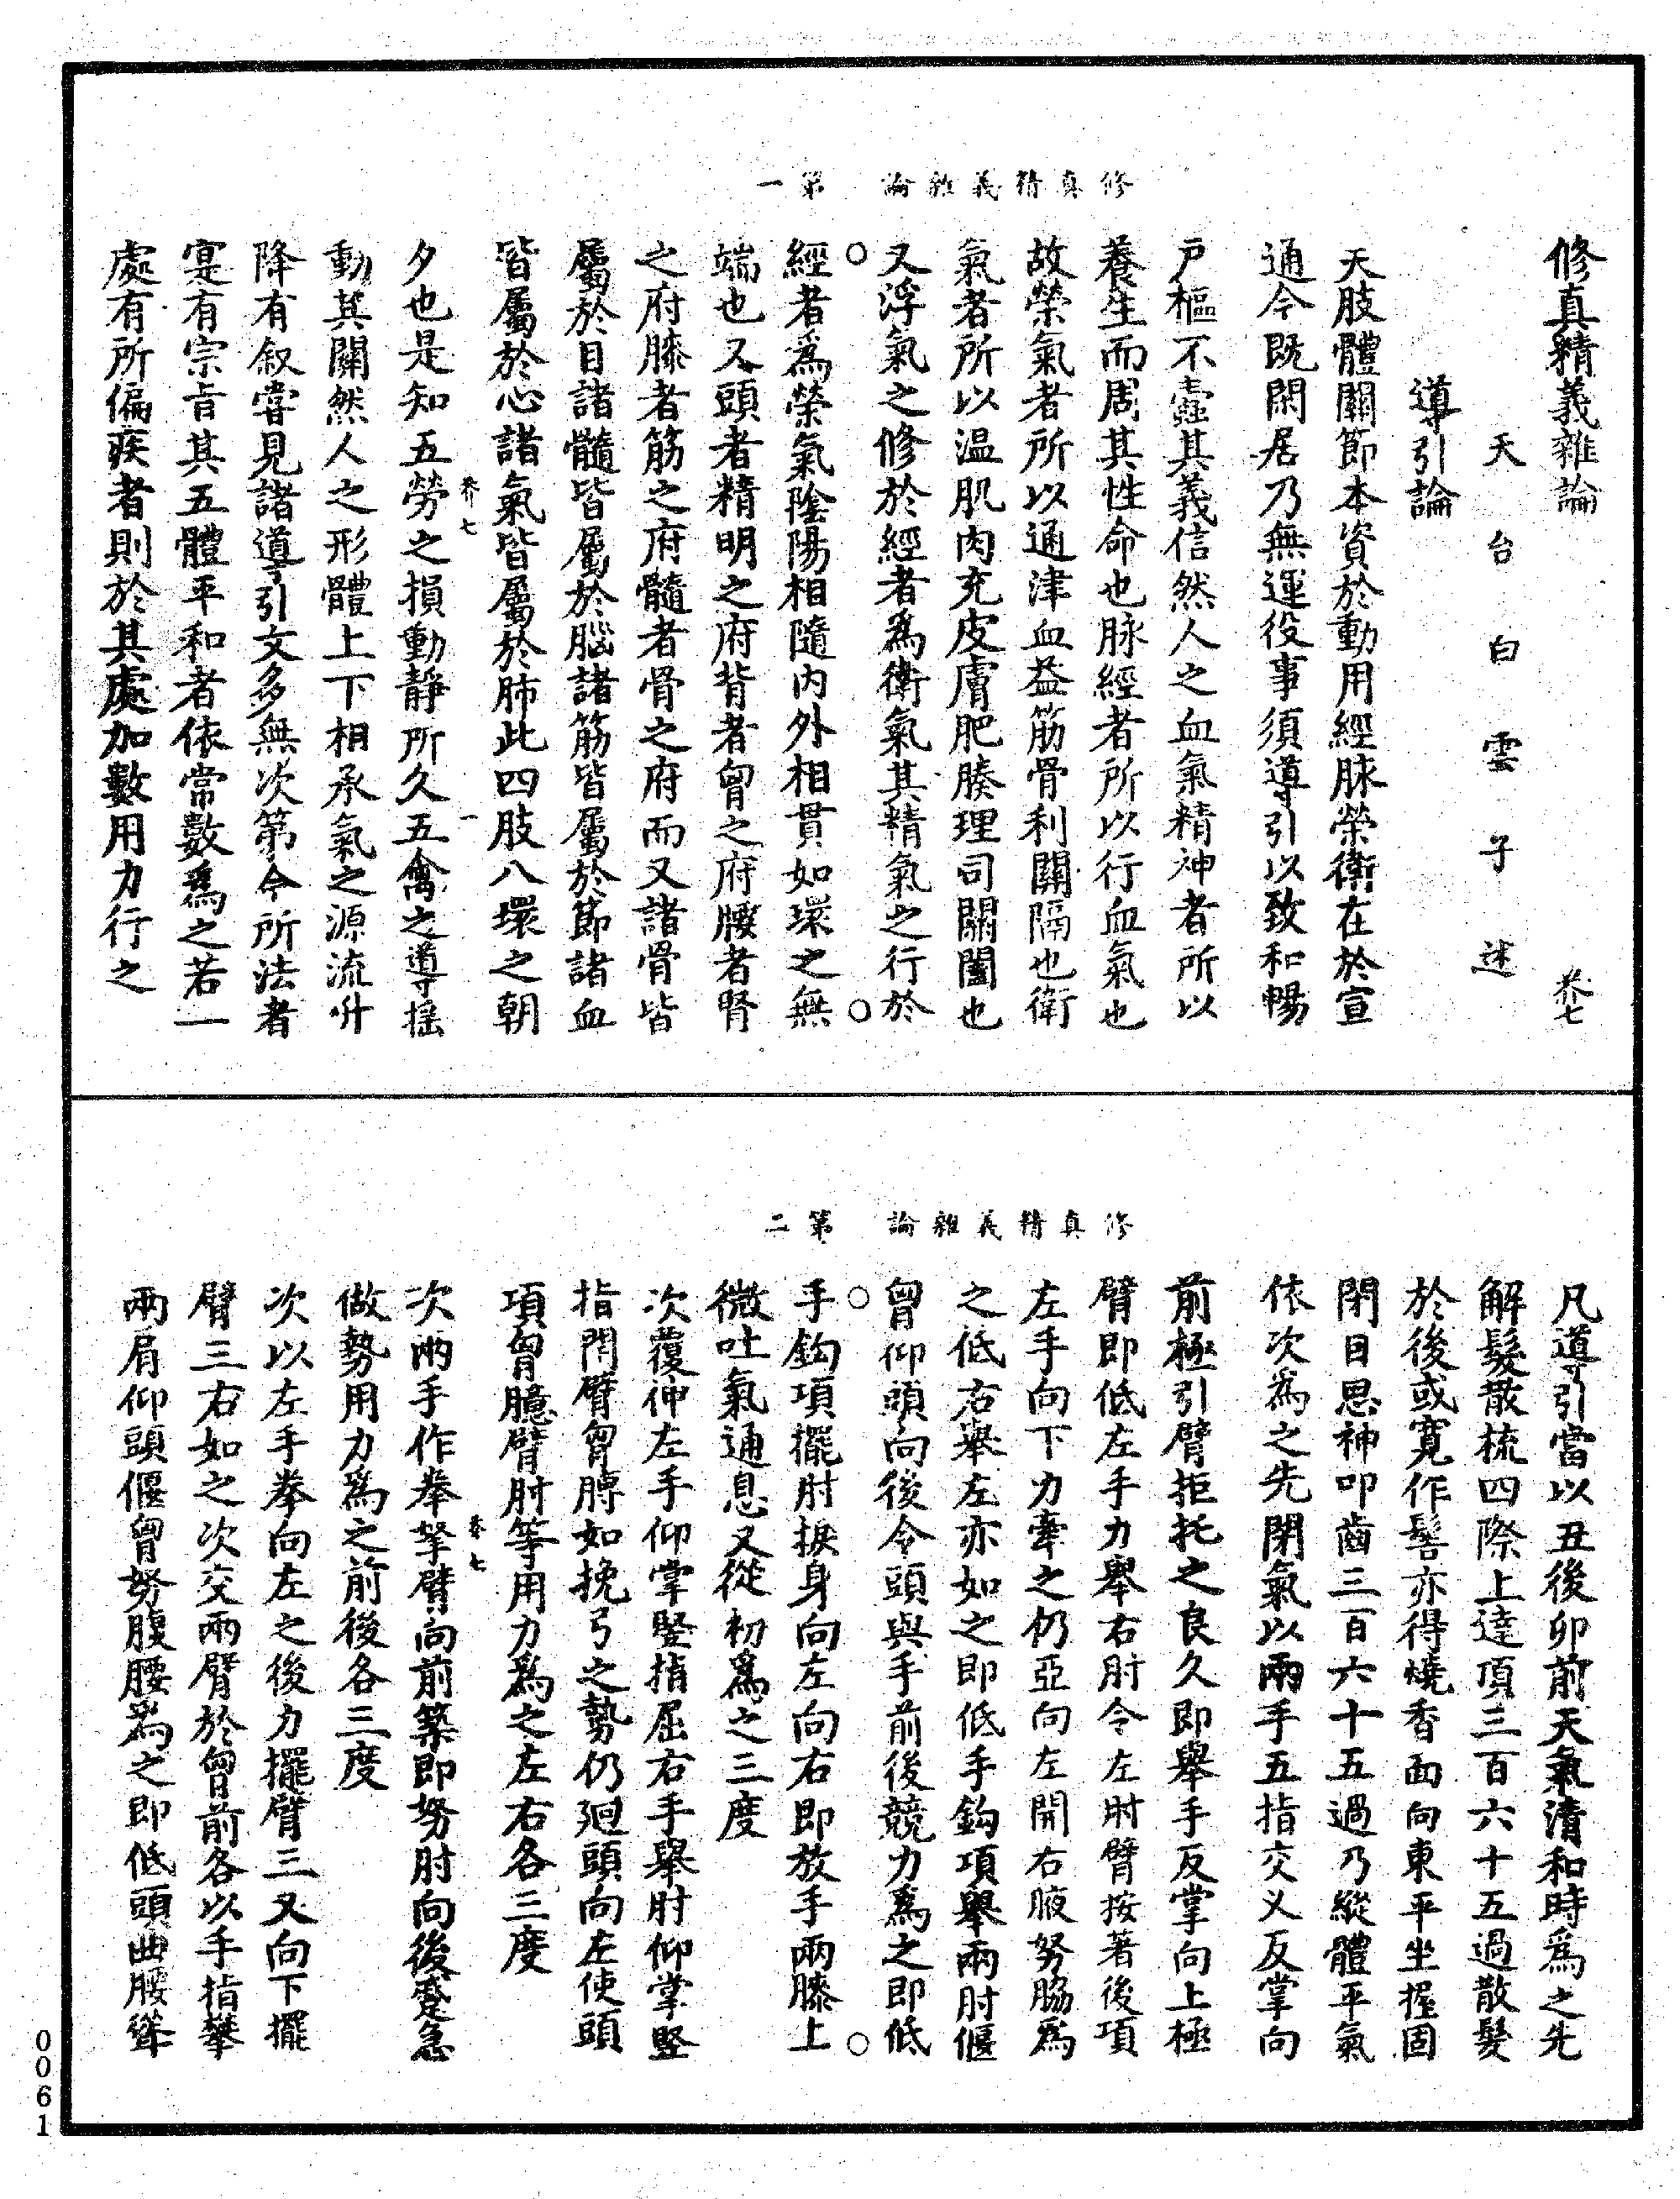 修真精義雜論　卷七
天台白雲子述
導引論
夫肢體關節本資於動用經脉榮衛在於宣
通今既閑居乃無運役事須導引以致和暢
戸樞不蠹其義信然人之血氣精神者所以
養生而周其性命也脉經者所以行血氣也
故榮氣者所以通津血益筋骨利關隔也衛
氣者所以温肌肉充皮膚肥腠理司關闔也
又浮氣之修於經者爲衛氣其精氣之行於
修真精義雜論　第一
經者爲榮氣陰陽相隨内外相貫如環之無
端也又頭者精明之府背者胷之府腰者腎
之府膝者筋之府髓者骨之府而又諸骨皆
屬於目諸髓皆屬於腦諸筋皆屬於節諸血
皆屬於心諸氣皆屬於肺此四肢八環之朝
卷七　一
夕也是知五勞之損動靜所久五禽之導摇
動其關然人之形體上下相承氣之源流升
降有叙嘗見諸導引文多無次第今所法者
寔有宗旨其五體平和者依常數爲之若一
處有所偏疾者則於其處加數用力行之
凡導引當以丑後卯前天氣清和時爲之先
解髮散梳四際上達頂三百六十五過散髮
於後或寛作髻亦得燒香面向東平坐握固
閉目思神叩齒三百六十五過乃縱體平氣
依次爲之先閉氣以兩手五指交乂反掌向
前極引臂拒托之良久即舉手反掌向上極
臂即低左手力舉右肘令左肘臂按著後項
左手向下力牽之仍亞向左開右腋努脇爲
之低右舉左亦如之即低手鈎項舉兩肘偃
胷仰頭向後令頭與手前後競力爲之即低
修真精義雜論　第二
手鈎項擺肘捩身向左向右即放手兩膝上
微吐氣通息又從初爲之三度
次覆伸左手仰掌竪指屈右手舉肘仰掌竪
指閇臂胷膊如挽弓之勢仍廻頭向左使頭
項胷臆臂肘等用力爲之左右各三度
卷七
次兩手作拳拏臂向前築即努肘向後蹙急
做勢用力爲之前後各三度
次以左手拳向左之後力擺臂三又向下擺
臂三右如之次交兩臂於胷前各以手指攀
兩肩仰頭偃胷努腹腰爲之即低頭曲腰聳
0061